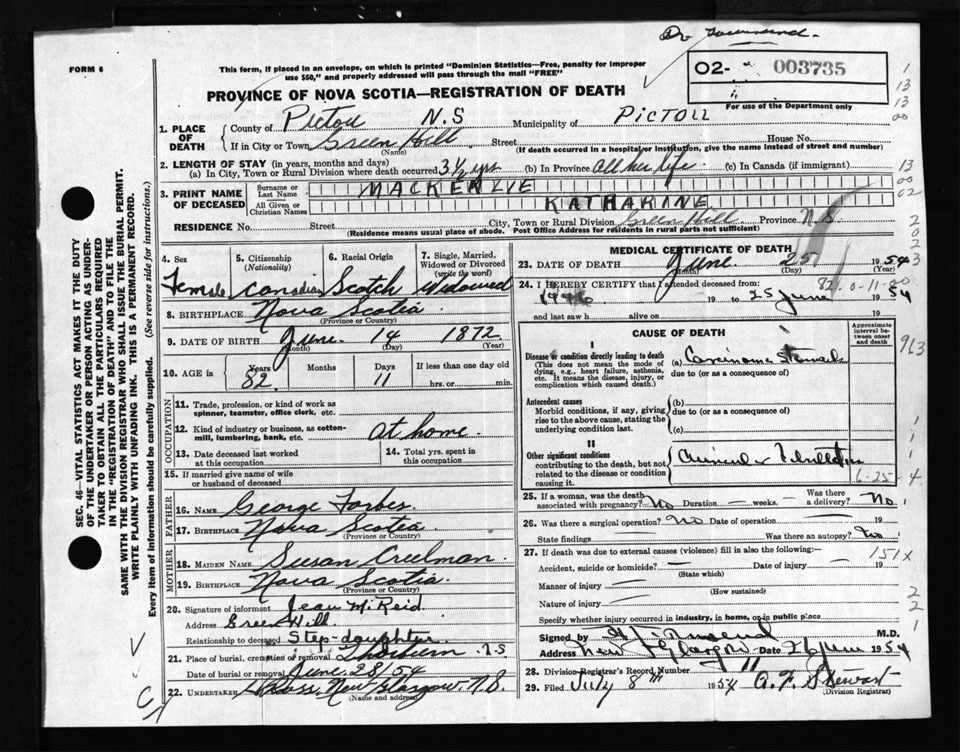 Dr Townsend.
FORM 6
This form, if placed in an envelope, on which is printed "Dominion Statistics—Free, penalty for improper use $50," and properly addressed will pass through the mail "FREE"
02- 003735
For use of the Department only
PROVINCE OF NOVA SCOTIA—REGISTRATION OF DEATH
1. PLACE OF DEATH
County of Pictou N.S Municipality of PICTOU
If in City or Town Green Hill Street House No.
(Name) (If death occurred in a hospital or institution, give the name instead of street and number)
2. LENGTH OF STAY (in years, months and days)
(a) In City, Town or Rural Division where death occurred 3½ yrs (b) In Province All her life (c) In Canada (if immigrant)
3. PRINT NAME OF DECEASED
Surname or Last Name MACKENZIE
All Given or Christian Names KATHARINE
RESIDENCE No. Street City, Town or Rural Division Green Hill Province N.S
(Residence means usual place of abode. Post Office Address for residents in rural parts not sufficient)
4. Sex Female
5. Citizenship (Nationality) Canadian
6. Racial Origin Scotch
7. Single, Married, Widowed or Divorced (write the word) Widowed
8. BIRTHPLACE Nova Scotia
(Province or Country)
9. DATE OF BIRTH June 14 1872
(Month) (Day) (Year)
10. AGE in Years 82 Months Days 11 If less than one day old
hrs. or min.
OCCUPATION
11. Trade, profession, or kind of work as spinner, teamster, office clerk, etc.
12. Kind of industry or business, as cotton-mill, lumbering, bank, etc. at home
13. Date deceased last worked at this occupation
14. Total yrs. spent in this occupation
15. If married give name of wife or husband of deceased
FATHER
16. Name George Forbes
17. Birthplace Nova Scotia
(Province or Country)
MOTHER
18. MAIDEN NAME Susan Creelman
19. BIRTHPLACE Nova Scotia
(Province or Country)
20. Signature of informant Jean M. Reid
Address Green Hill
Relationship to deceased Step-daughter
21. Place of burial, cremation or removal Thorburn N.S
Date of burial or removal June 28/54
22. UNDERTAKER New Glasgow N.S.
(Name and address)
MEDICAL CERTIFICATE OF DEATH
23. DATE OF DEATH June 25 1954
(Month) (Day) (Year)
82-0-11-80
24. I HEREBY CERTIFY that I attended deceased from:
1946 19 to 25 June 1954
and last saw h alive on 19
CAUSE OF DEATH
Approximate interval between onset and death
I
Disease or condition directly leading to death
(This does not mean the mode of dying, e.g., heart failure, asthenia, etc. It means the disease, injury, or complication which caused death.)
(a) Carcinoma Stomach
due to (or as a consequence of)
Antecedent causes
Morbid conditions, if any, giving rise to the above cause, stating the underlying condition last.
(b)
due to (or as a consequence of)
(c)
II
Other significant conditions contributing to the death, but not related to the disease or condition causing it.
Auricular Fibrillation
6-25
25. If a woman, was the death associated with pregnancy? No Duration — weeks. — Was there a delivery? No
26. Was there a surgical operation? No Date of operation 19
State findings Was there an autopsy? No
27. If death was due to external causes (violence) fill in also the following:—
151X
Accident, suicide or homicide? — Date of injury — 19
(State which)
Manner of injury —
(How sustained)
Nature of injury —
Specify whether injury occurred in industry, in home, or in public place
Signed by H. J. Townsend M.D.
Address New Glasgow Date 26 June 1954
28. Division Registrar's Record Number 11
29. Filed July 8th 1954 A. F. Stewart
(Division Registrar)
SEC. 46—VITAL STATISTICS ACT MAKES IT THE DUTY OF THE UNDERTAKER OR PERSON ACTING AS UNDERTAKER TO OBTAIN ALL THE PARTICULARS REQUIRED IN THE "REGISTRATION OF DEATH" AND TO FILE THE SAME WITH THE DIVISION REGISTRAR WHO SHALL ISSUE THE BURIAL PERMIT.
WRITE PLAINLY WITH UNFADING INK. THIS IS A PERMANENT RECORD.
Every item of information should be carefully supplied. (See reverse side for instructions.)